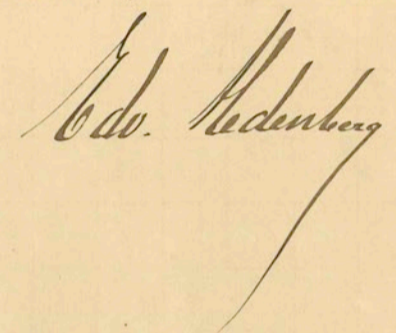 Edv. Hedenberg